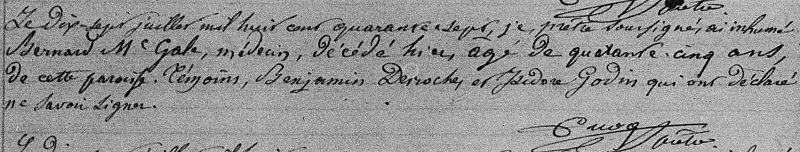 Le dix-sept juillet mil huit cent quarante-sept, je, prêtre soussigné, ai inhumé
Bernard Mc Gale, médecin, décédé hier, agé de quarante-cinq ans,
de cette paroisse. Témoins, Benjamin Derroches, et Isidore Godin qui ont déclaré
ne savoir signer.